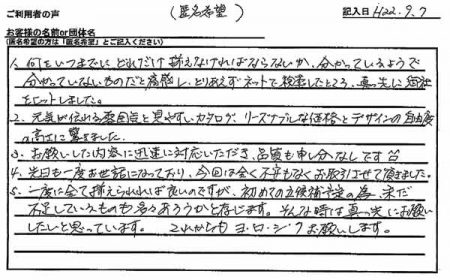 ご利用者の声 (匿名希望) 記入日 H22.9.7
お客様の名前or団体名
(匿名希望の方は「匿名希望」とご記入ください)
1、何をいつまでに どれだけ揃えなければならないか、分かっているようで
分かっていないものだと痛感し、とりあえずネットで検索したところ、真っ先に御社
をヒットしました。
2、元気が伝わる雰囲気と見やすいカタログ、リーズナブルな価格とデザインの自由度
の高さに驚きました。
3、お願いした内容に迅速に対応いただき、品質も申し分なしです
4、先日も一度お世話になっており、今回は全く不安もなくお取引させて頂きました。
5、一度に全て揃えられれば良いのですが、初めての立候補予定の為、未だ
不足しているものも多々あろうかと存じます。そんな時は真っ先にお願い
したいと思っています。 これからも ヨ・ロ・シ・ク お願いします。